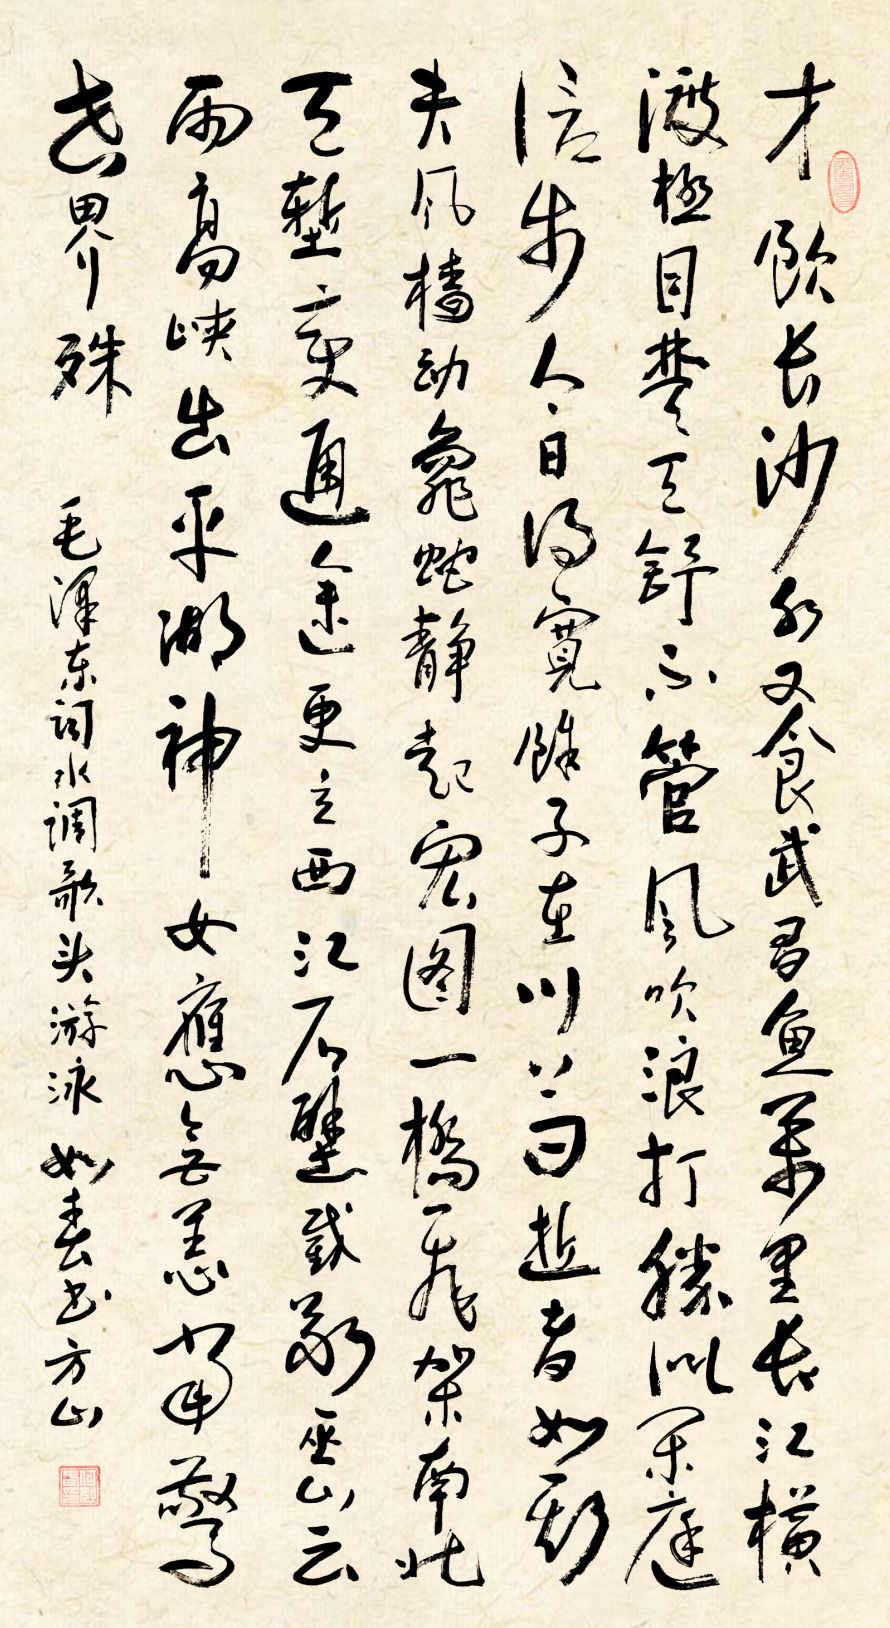 才飲长沙水又食武昌魚萬里长江横
渡極目楚天舒不管風吹浪打勝似闲庭
信步今日得寬餘子在川上曰逝者如斯
夫风樯动龜蛇静起宏图一橋飛架南北
天塹变通途更立西江石壁截断巫山云
雨高峡出平湖神女應無恙當驚
世界殊
毛泽东词水调歌头游泳 如春书方山